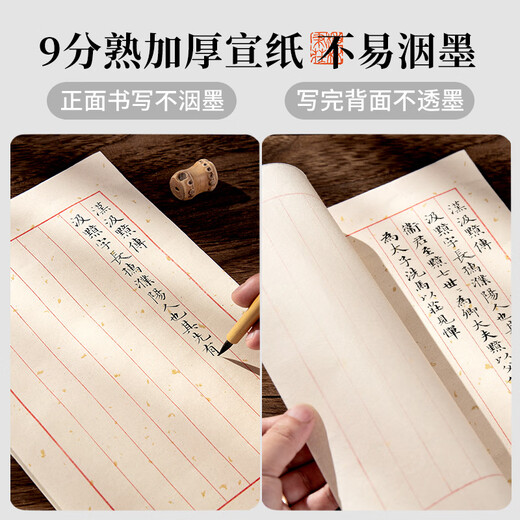 9分熟加厚宣纸 不易洇墨
正面书写不洇墨
写完背面不透墨
漢汲黯傳
汲黯字長孺濮陽人也其先有
漢汲黯傳
汲黯字長孺濮陽人也其先有
衛君至黯七世世為卿大夫黯以父
為太子洗馬以莊見憚